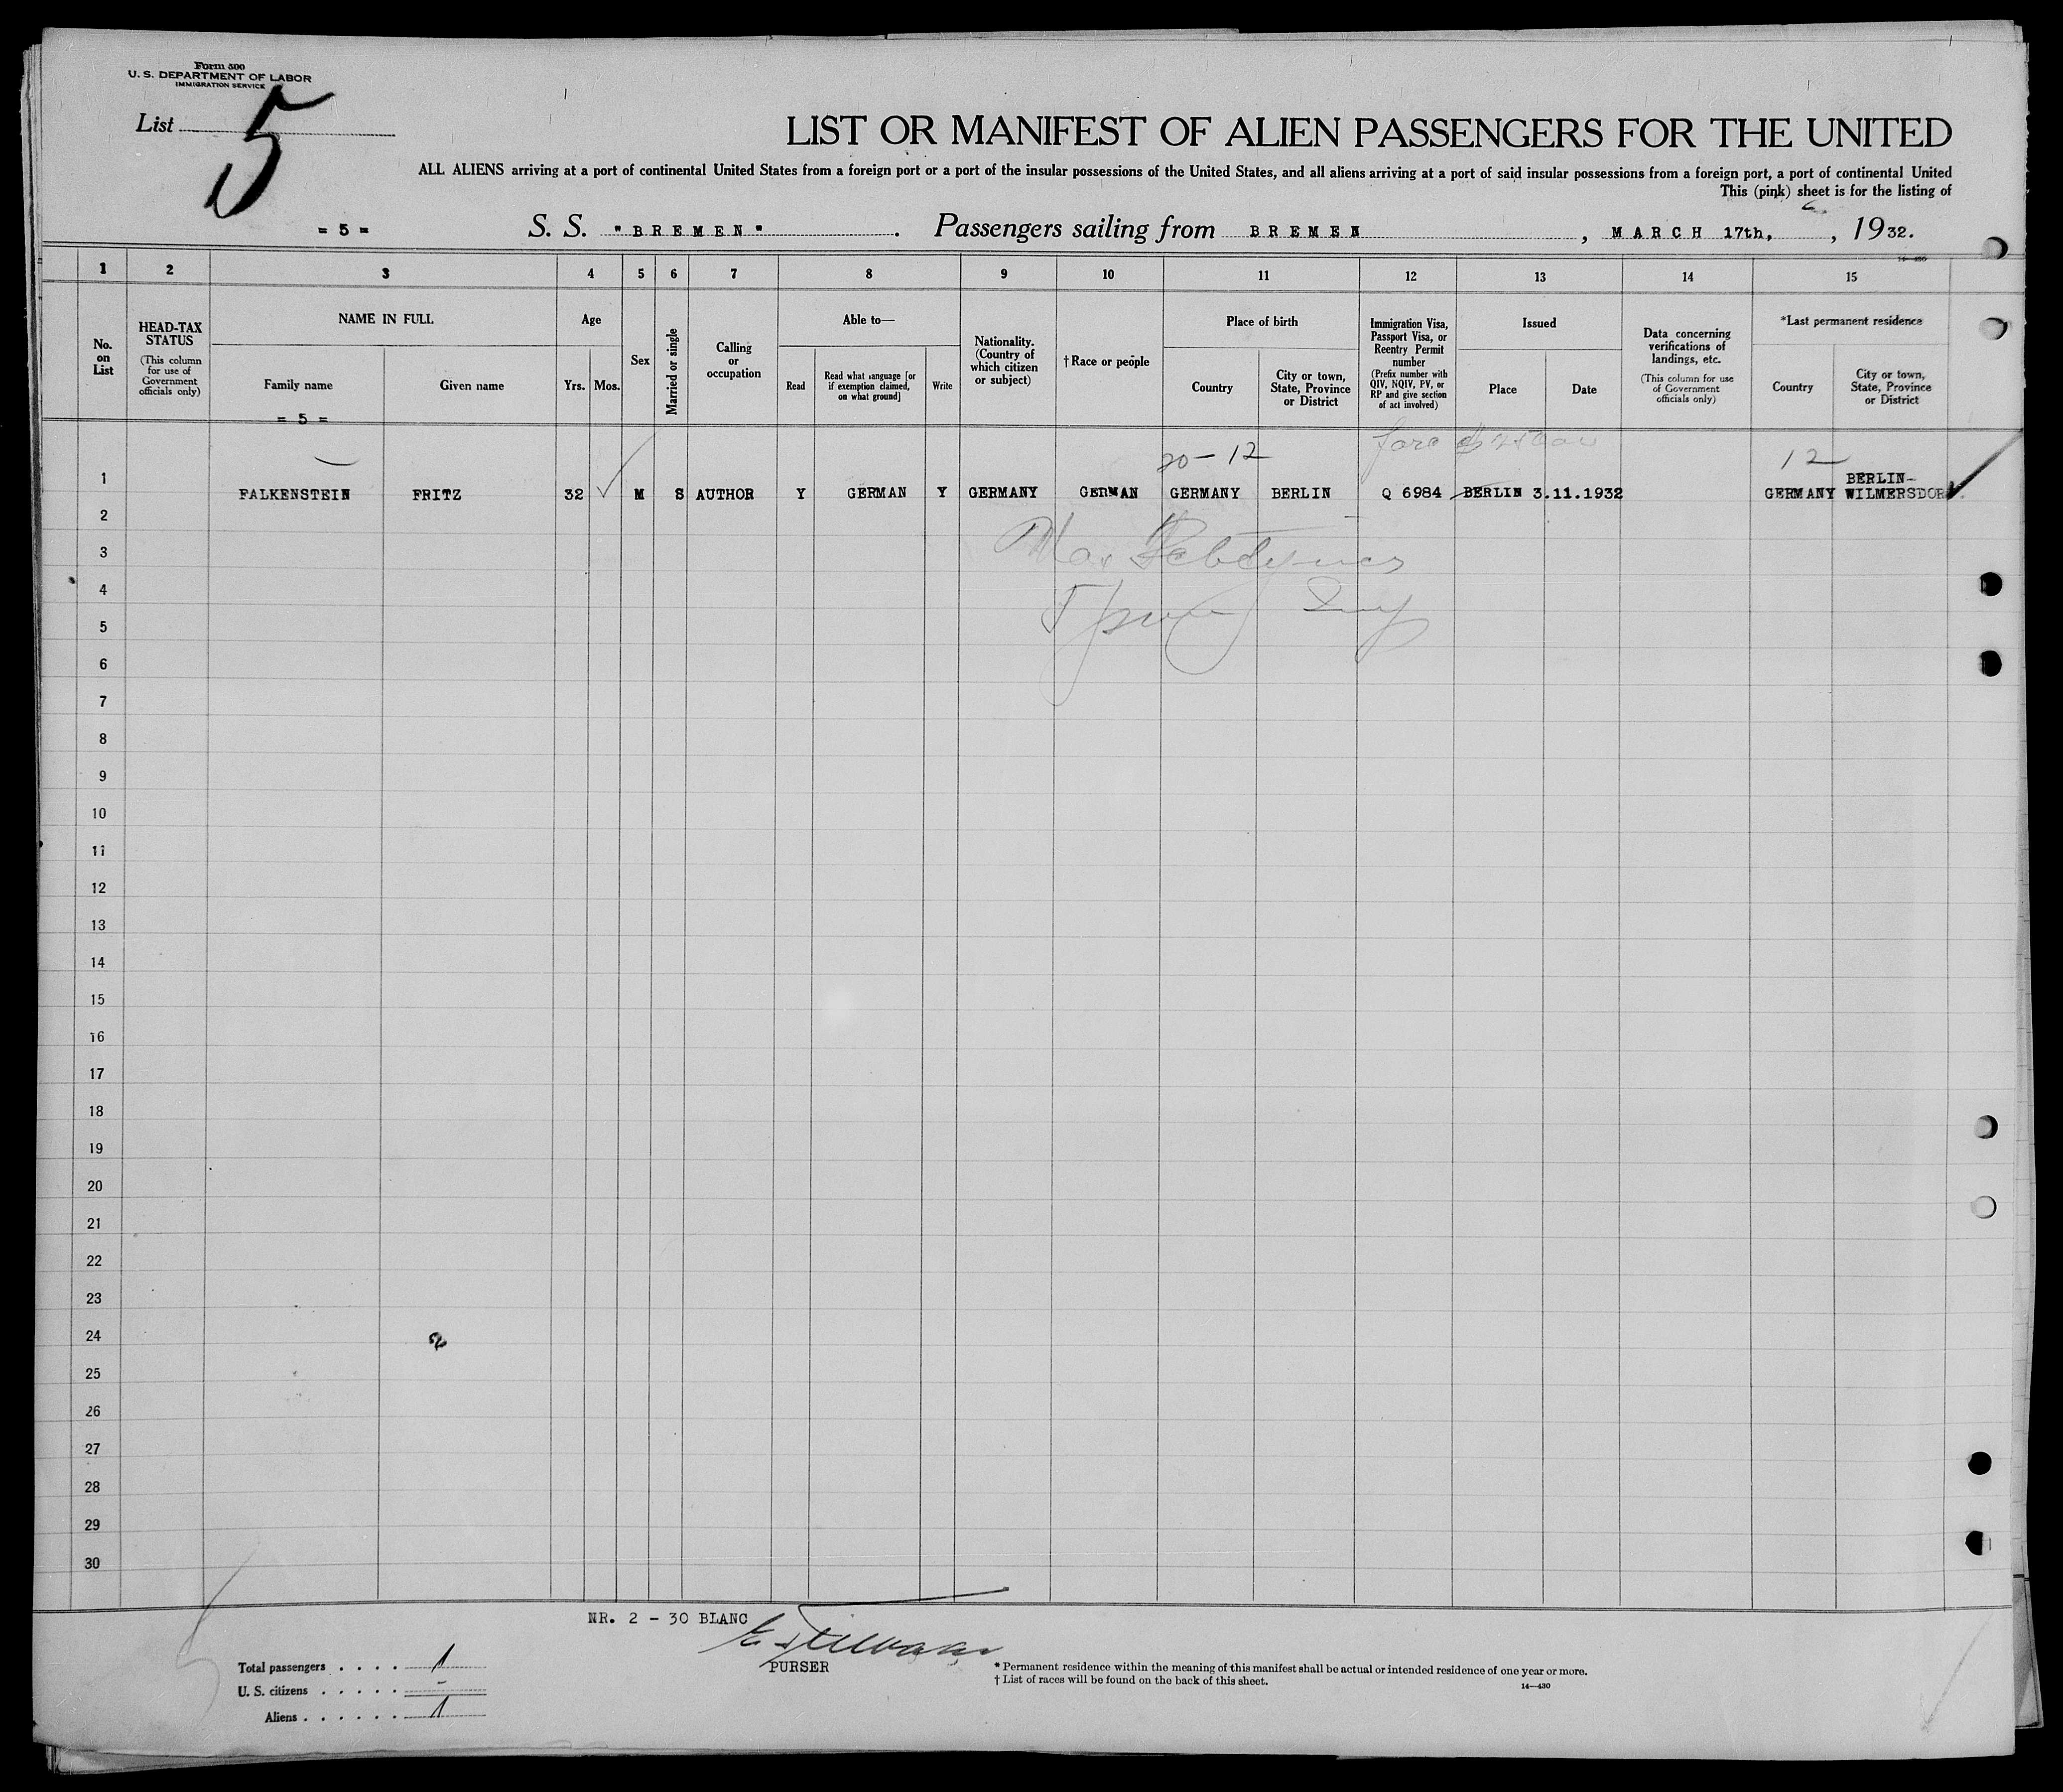 Form 500
U. S. DEPARTMENT OF LABOR
IMMIGRATION SERVICE
List 5
LIST OR MANIFEST OF ALIEN PASSENGERS FOR THE UNITED
ALL ALIENS arriving at a port of continental United States from a foreign port or a port of the insular possessions of the United States, and all aliens arriving at a port of said insular possessions from a foreign port, a port of continental United
This (pink) sheet is for the listing of
= 5 = S. S. "BREMEN". Passengers sailing from BREMEN, MARCH 17th, , 1932.
14—430
1 2 3 4 5 6 7 8 9 10 11 12 13 14 15
No. on List
HEAD-TAX STATUS
(This column for use of Government officials only)
NAME IN FULL
Family name
Given name
= 5 =
Age
Yrs. Mos.
Sex
Married or single
Calling or occupation
Able to—
Read
Read what language [or if exemption claimed, on what ground]
Write
Nationality. (Country of which citizen or subject)
† Race or people
Place of birth
Country
City or town, State, Province or District
Immigration Visa, Passport Visa, or Reentry Permit number
(Prefix number with QIV, NQIV, PV, or RP and give section of act involved)
Issued
Place
Date
Data concerning verifications of landings, etc.
(This column for use of Government officials only)
*Last permanent residence
Country
City or town, State, Province or District
20-12
12
BERLIN-
1 FALKENSTEIN FRITZ 32 M S AUTHOR Y GERMAN Y GERMANY GERMAN GERMANY BERLIN Q 6984 BERLIN 3.11.1932 GERMANY WILMERSDORF
2
3
4
5
6
7
8
9
10
11
12
13
14
15
16
17
18
19
20
21
22
23
24
25
26
27
28
29
30
NR. 2 - 30 BLANC
PURSER
Total passengers . . . . 1
U. S. citizens . . . . . -
Aliens . . . . . . 1
* Permanent residence within the meaning of this manifest shall be actual or intended residence of one year or more.
† List of races will be found on the back of this sheet.
14—430